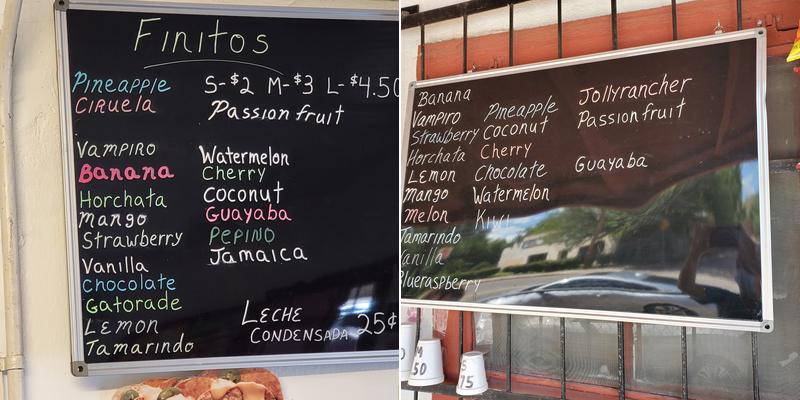 Finitos
Pineapple S-$2 M-$3 L-$4.50
Ciruela Passion fruit
Vampiro Watermelon
Banana Cherry
Horchata Coconut
Mango Guayaba
Strawberry Pepino
Vanilla Jamaica
Chocolate
Gatorade
Lemon Leche
Tamarindo Condensada 25¢
Banana Pineapple Jollyrancher
Vampiro Coconut Passion fruit
Strawberry Cherry
Horchata Chocolate Guayaba
Lemon Watermelon
Mango Kiwi
Melon
Tamarindo
Vanilla
Blueraspberry